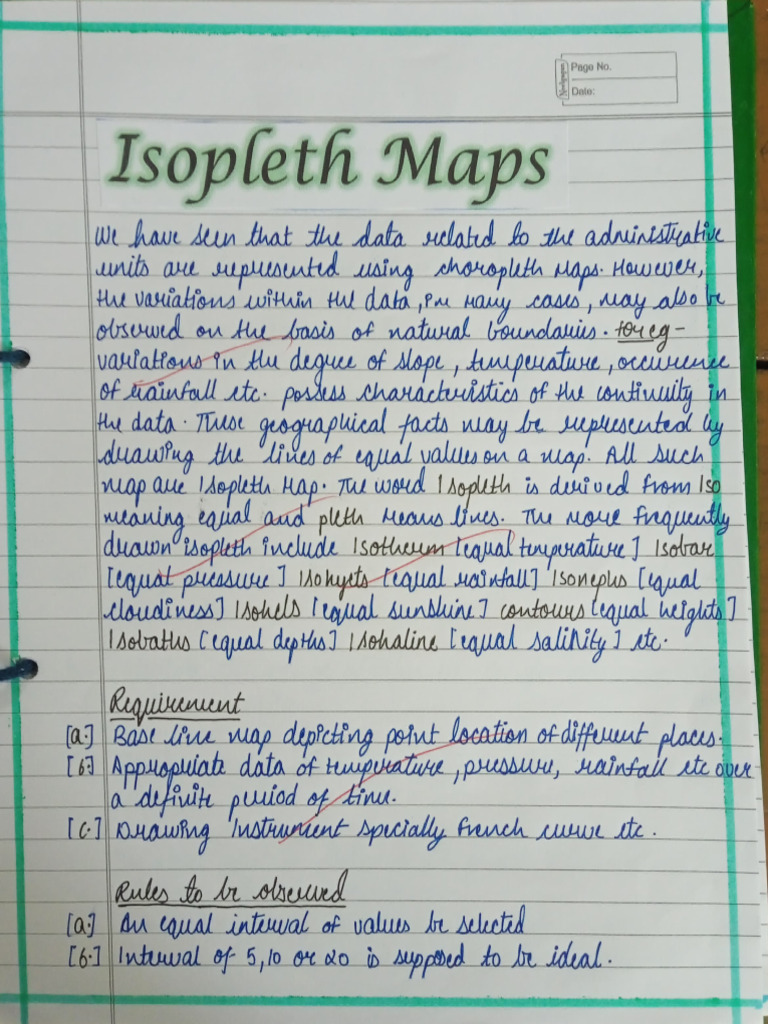 Page No.
Date:
Isopleth Maps
We have seen that the data related to the administrative
units are represented using choropleth Maps. However,
the variations within the data, in many cases, may also be
observed on the basis of natural boundaries. for eg-
variations in the degree of slope, temperature, occurence
of rainfall etc. possess characteristics of the continuity in
the data. These geographical facts may be represented by
drawing the lines of equal values on a map. All such
map are Isopleth Map. The word Isopleth is derived from Iso
meaning equal and pleth means lines. The more frequently
drawn isopleth include Isotherm [equal temperature] Isobar
[equal pressure] Isohyets [equal rainfall] Isonephs [equal
cloudiness] Isohels [equal sunshine] contours [equal heights]
Isobaths [equal depths] Isohaline [equal salinity] etc.
Requirement
[a.] Base line map depicting point location of different places.
[b.] Appropriate data of temperature, pressure, rainfall etc over
a definite period of time.
[c.] Drawing Instrument specially French curve etc.
Rules to be observed
[a.] An equal interval of values be selected
[b.] Interval of 5, 10 or 20 is supposed to be ideal.